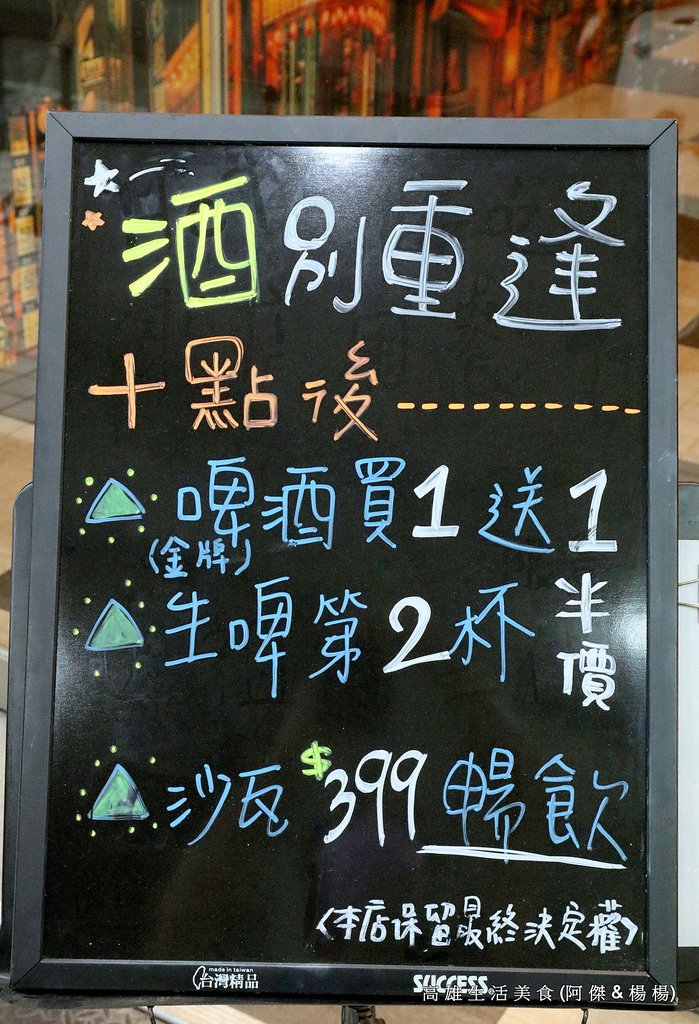 酒別重逢
十點後---------
啤酒買1送1
(金牌)
生啤第2杯半價
沙瓦$399暢飲
〈本店保留最終決定權〉
made in taiwan
台灣精品
SUCCESS
高雄生活美食(阿傑&楊楊)